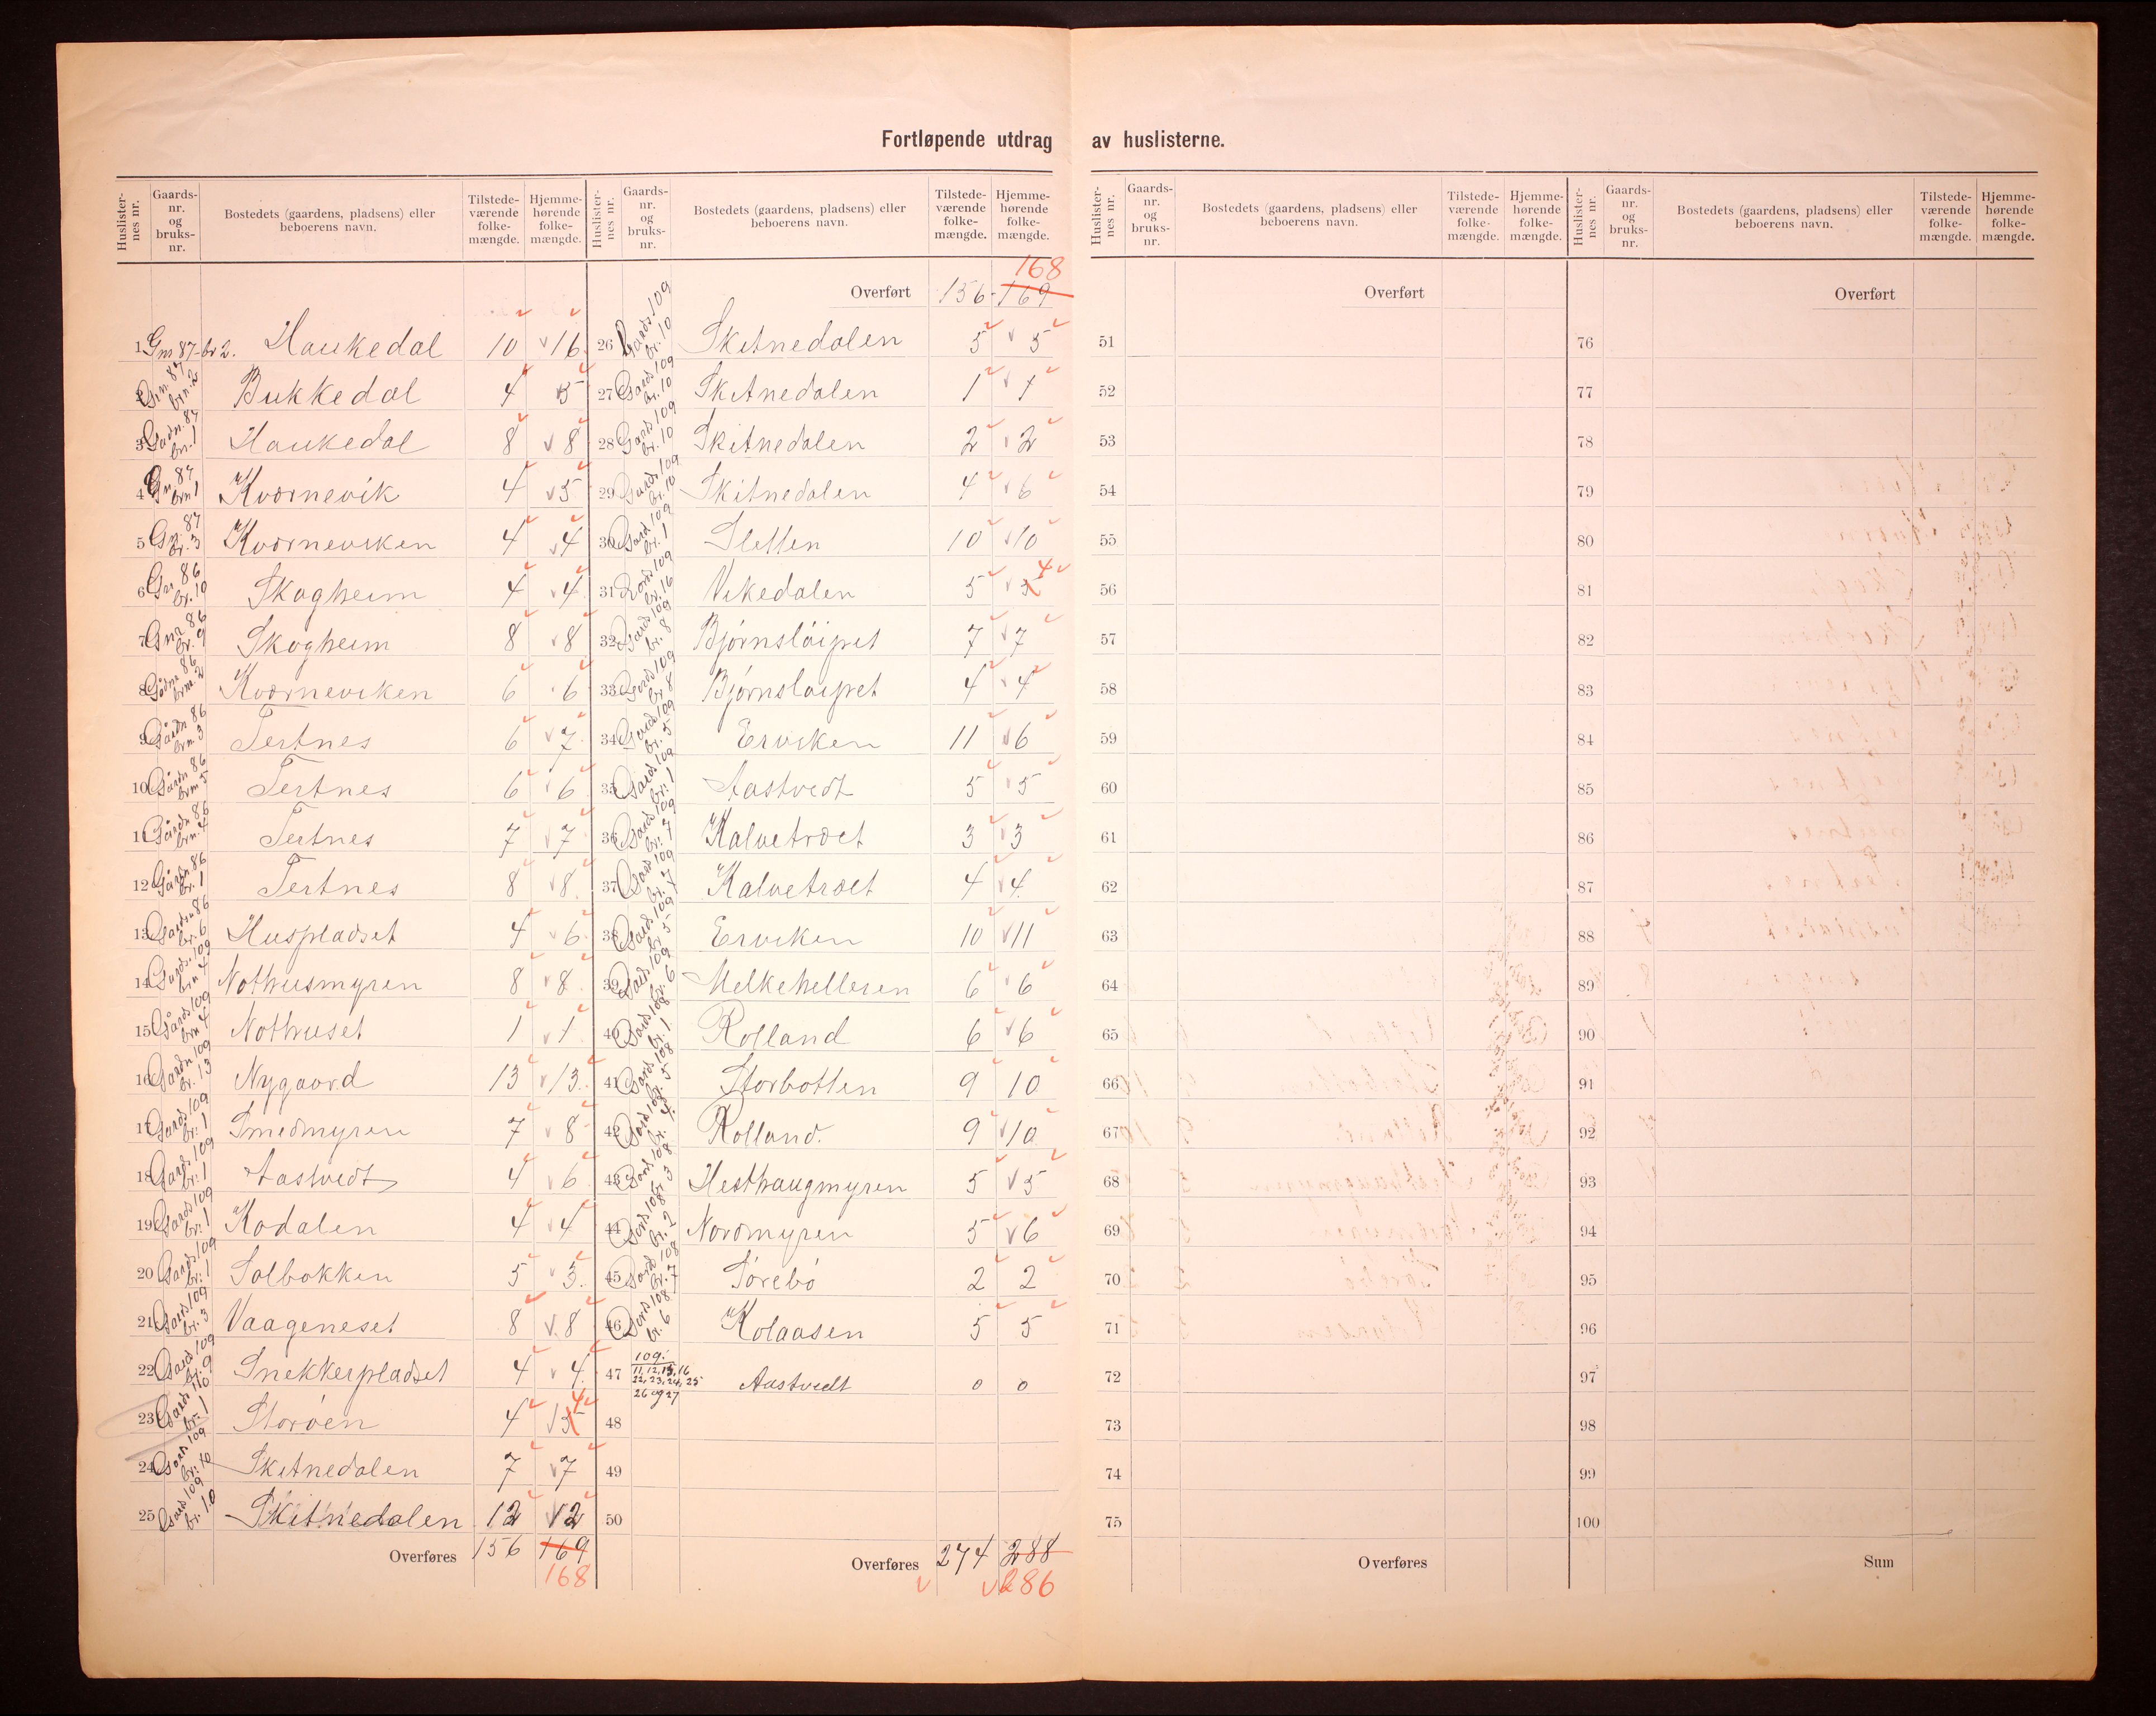 Fortløpende utdrag av huslisterne.
Huslister-nes nr. Gaards-nr. og bruks-nr. Bostedets (gaardens, pladsens) eller beboerens navn. Tilstede-værende folke-mængde. Hjemme-hørende folke-mængde.
1 Gnr 87 br 2. Haukedal 10 16
2 Grn. 87 brn. 2 Bukkedal 4 5
3 Gardn. 87 brn. 1 Haukedal 8 8
4 Gn 87 brn 1 Kvørnevik 4 5
5 Gn. 87 br. 3 Kvørneviken 4 4
6 Gnr 86 br. 10 Skogheim 4 4
7 Gnr 86 br. 9 Skogheim 8 8
8 Gådnr 86 brnr. 2 Kvørneviken 6 6
9 Gårdn 86 brn. 3 Tertnes 6 7
10 Gårdn 86 brn 5 Tertnes 6 6
11 Gårdn 86 brn. 4 Tertnes 7 7
12 Gårdn 86 br. 1 Tertnes 8 8
13 Gaardsn 86 br. 6 Huspladset 4 6
14 Gaards. 109 brn 4 Nothusmyren 8 8
15 Gårds 109 brn 4 Nothuset 1 1
16 Gaardn 109 br. 13 Nygaard 13 13
17 Gaards 109 br. 1 Smedmyren 7 8
18 Gaards 109 br. 1 Aastvedt 4 6
19 Gaards 109 br. 1 Kodalen 4 4
20 Gaards 109 br. 1 Solbakken 5 5
21 Gaards 109 br. 3 Vaageneset 8 8
22 Gaards 109 br. 9 Snekkerpladset 4 4
23 Gaards 110 br. 1 Storøen 4 5 4
24 Gaards 109 br. 10 Skitnedalen 7 7
25 Gaards 109 br. 10 Skitnedalen 12 12
Overføres 156 169
168
Huslister-nes nr. Gaards-nr. og bruks-nr. Bostedets (gaardens, pladsens) eller beboerens navn. Tilstede-værende folke-mængde. Hjemme-hørende folke-mængde.
168
Overført 156 169
26 Gaards 109 br. 10 Skitnedalen 5 5
27 Gaards 109 br. 10 Skitnedalen 1 1
28 Gards 109 br. 10 Skitnedalen 2 2
29 Gaards 109 br. 10 Skitnedalen 4 6
30 Gaard 109 br. 1 Sletten 10 10
31 Gards 109 br. 16 Vikedalen 5 5 4
32 Gaards 109 br. 8 Bjørnsløipet 7 7
33 Gards 109 br. 8 Bjørnsløipet 4 4
34 Gaards 109 br. 5 Erviken 11 6
35 Gaards 109 br. 1 Aastvedt 5 5
36 Gaards 109 br. 7 Kalvetræet 3 3
37 Gaards 109 br. 7 Kalvetræet 4 4
38 Gaards 109 br. 5 Erviken 10 11
39 Gaards 109 br. 6 Melkehelleren 6 6
40 Gaards 108 br. 1 Rolland 6 6
41 Gaards 108 br. 5 Storbotten 9 10
42 Gards 108 br. 4 Rolland. 9 10
43 Gards 108 br. 3 Hesthaugmyren 5 5
44 Gards 108 br. 2 Nordmyren 5 6
45 Gards 108 br. 7 Sørebø 2 2
46 Gards 108 br. 6 Kolaasen 5 5
47 109. 11, 12, 15, 16 22, 23, 24, 25 26 og 27 Aastvedt 0 0
48
49
50
Overføres 274 288
286
Huslister-nes nr. Gaards-nr. og bruks-nr. Bostedets (gaardens, pladsens) eller beboerens navn. Tilstede-værende folke-mængde. Hjemme-hørende folke-mængde.
Overført
51
52
53
54
55
56
57
58
59
60
61
62
63
64
65
66
67
68
69
70
71
72
73
74
75
Overføres
Huslister-nes nr. Gaards-nr. og bruks-nr. Bostedets (gaardens, pladsens) eller beboerens navn. Tilstede-værende folke-mængde. Hjemme-hørende folke-mængde.
Overført
76
77
78
79
80
81
82
83
84
85
86
87
88
89
90
91
92
93
94
95
96
97
98
99
100
Sum